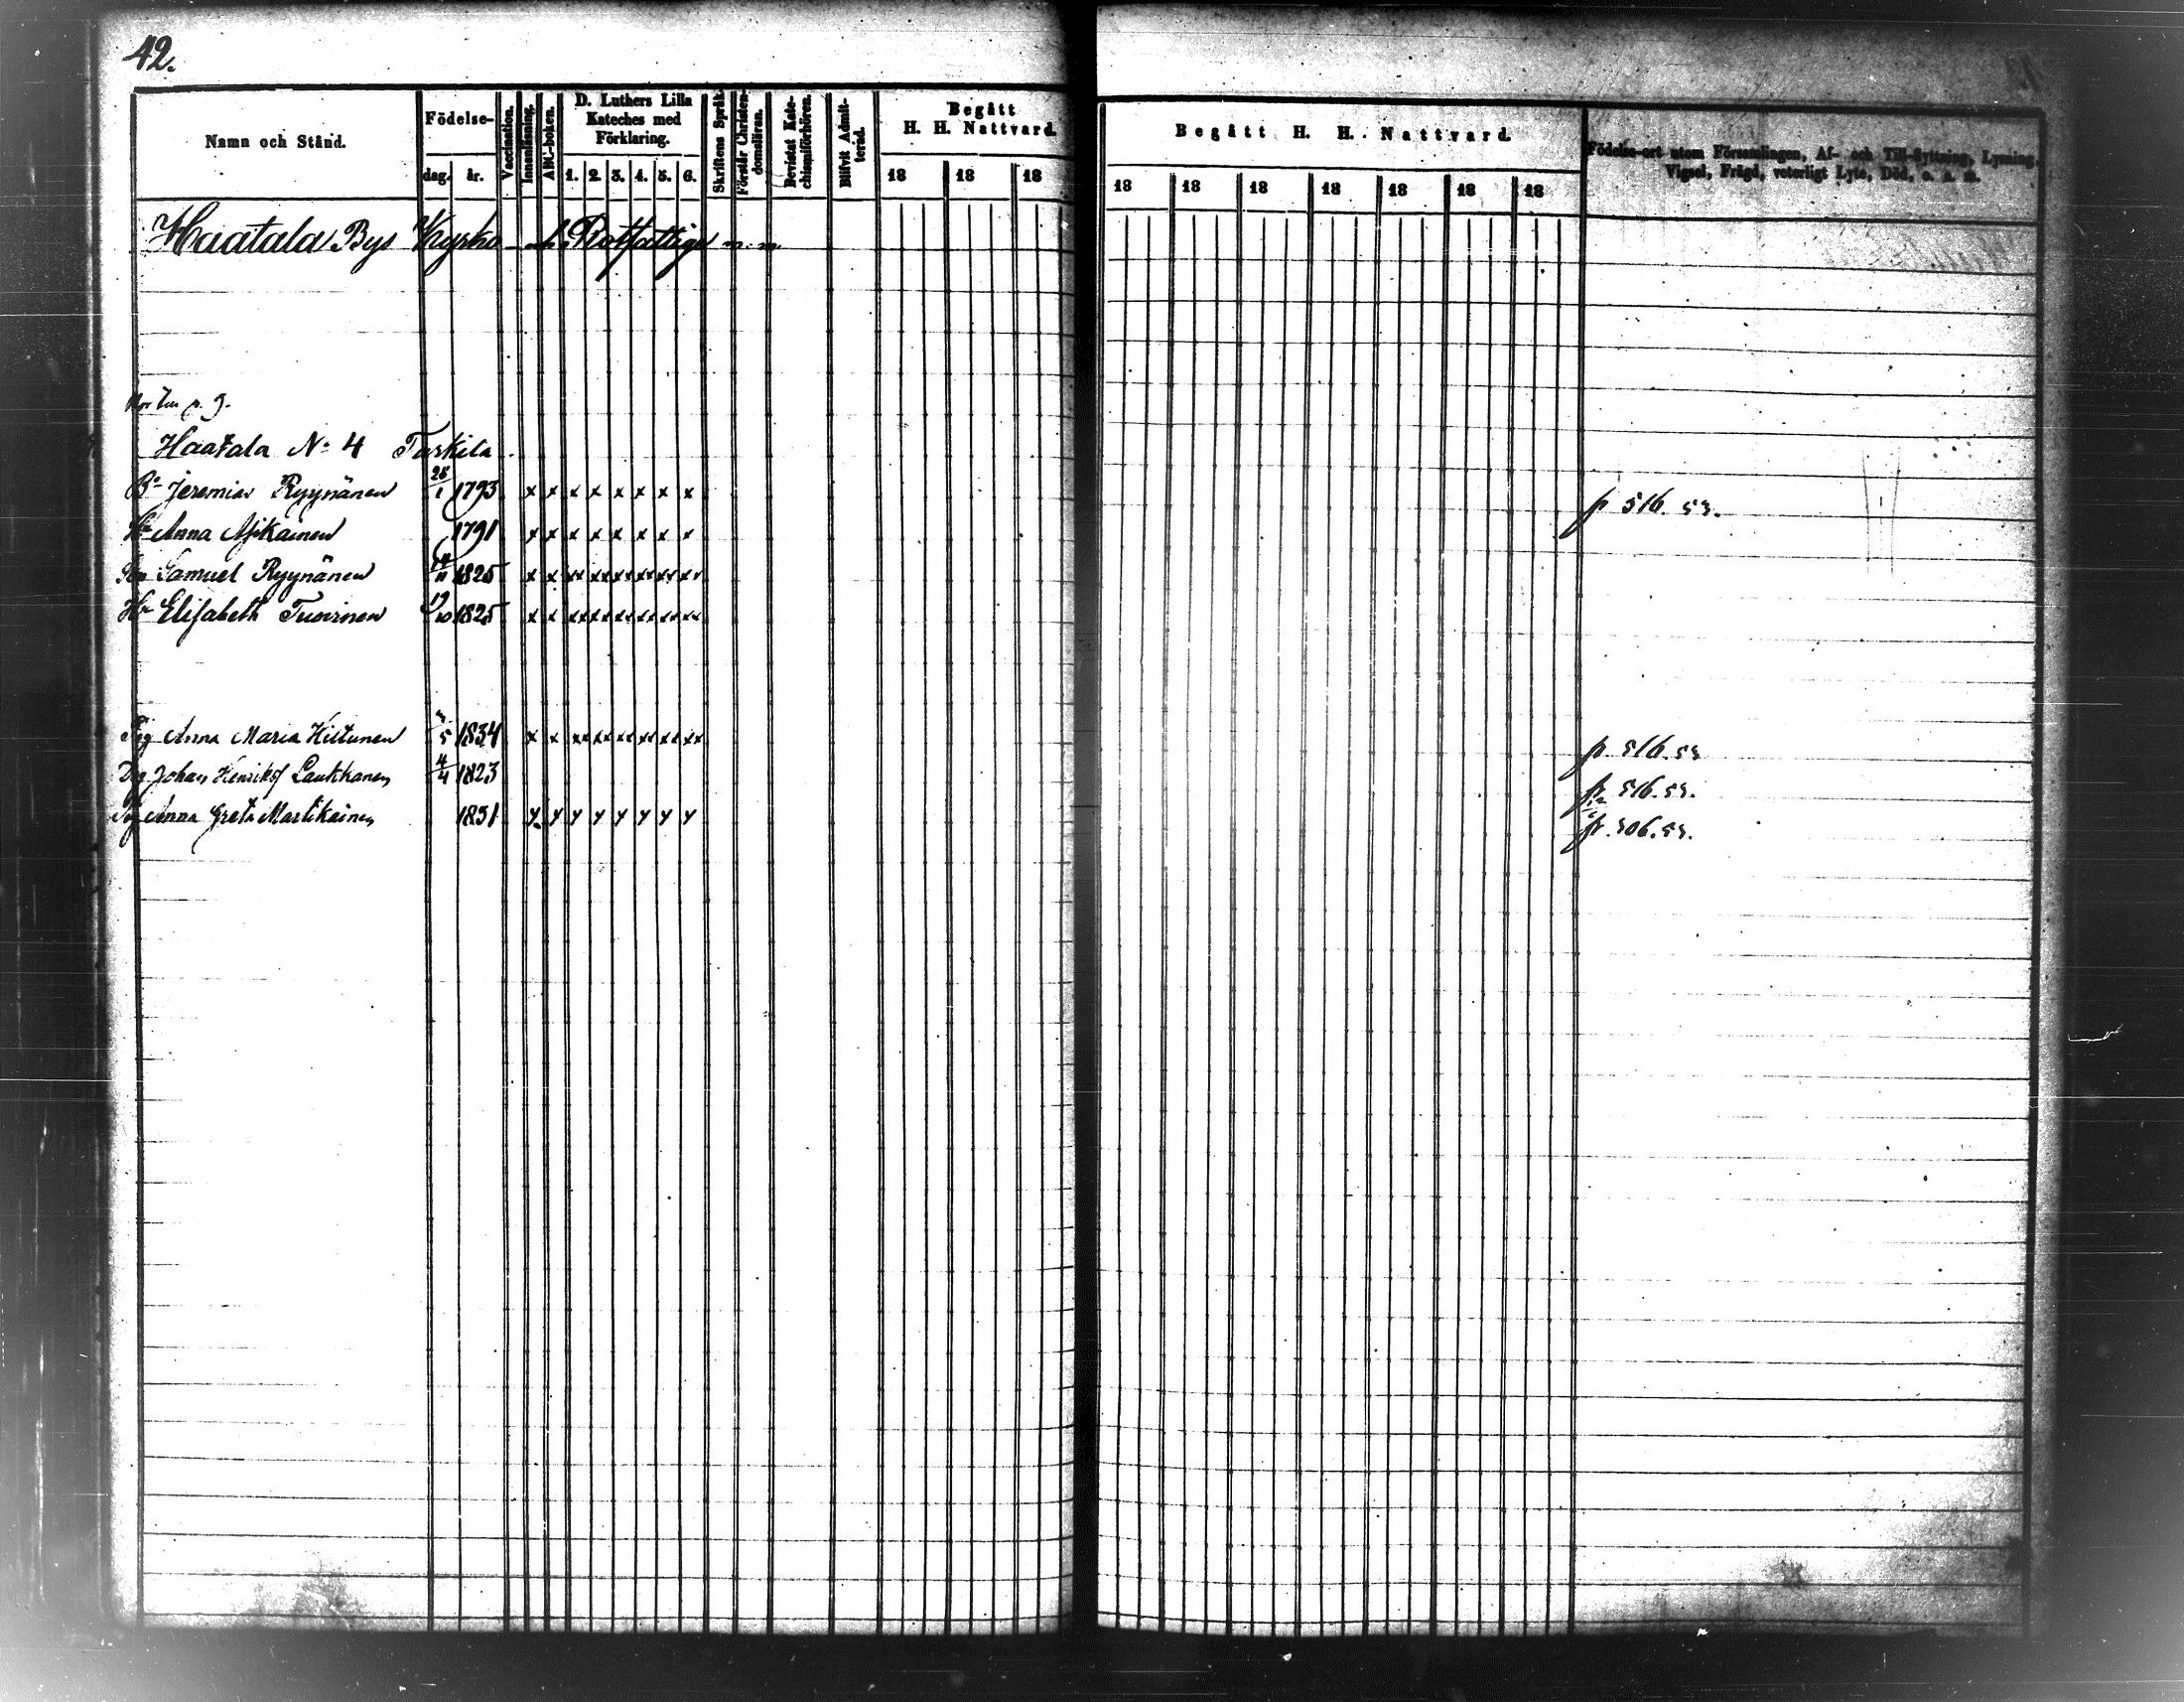 42.
Namn och Stånd.
Födelse-
dag. år.
Vaccination.
Innanläsning.
ABC-boken.
D. Luthers Lilla
Kateches med
Förklaring.
1. 2. 3. 4. 5. 6.
Skriftens Språk.
Förstår Christen-
domsläran.
Bevistat Kate-
chismiförhören.
Blifvit Admit-
terad.
Begått
H. H. Nattvard.
18 18 18
Begått H. H. Nattvard.
18 18 18 18 18 18 18
Födelse-ort utom Församlingen, Af- och Till-flyttning, Lysning,
Vigsel, Frägd, veterligt Lyte, Död, o. s. m.
Haatala Bys Kyrko och Rotfattige m.m.
p. 9.
Haatala No 4 Turkila
Be Jeremias Ryynänen 28/1 1793 x x x x x x x x p 516. 53.
H. Anna Asikainen 1791 x x x x x x x x
Son Samuel Ryynänen 1825 x x xx xx xx xx xx xx
Hu Elisabeth Tuovinen 19/10 1825 x x xx xx xx xx xx xx
Pig Anna Maria Hiltunen 1834 x x xx xx xx xx xx xx p. 516. 53
Dg Johan Henriks Laukkanen 4/4 1823 p. 516. 53.
Pig Anna Greta Martikainen 1831 y y y y y y y y p. 506. 53.